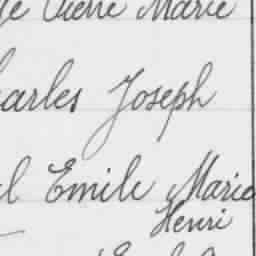 Pierre Marie
Charles Joseph
Emile Marie
Henri